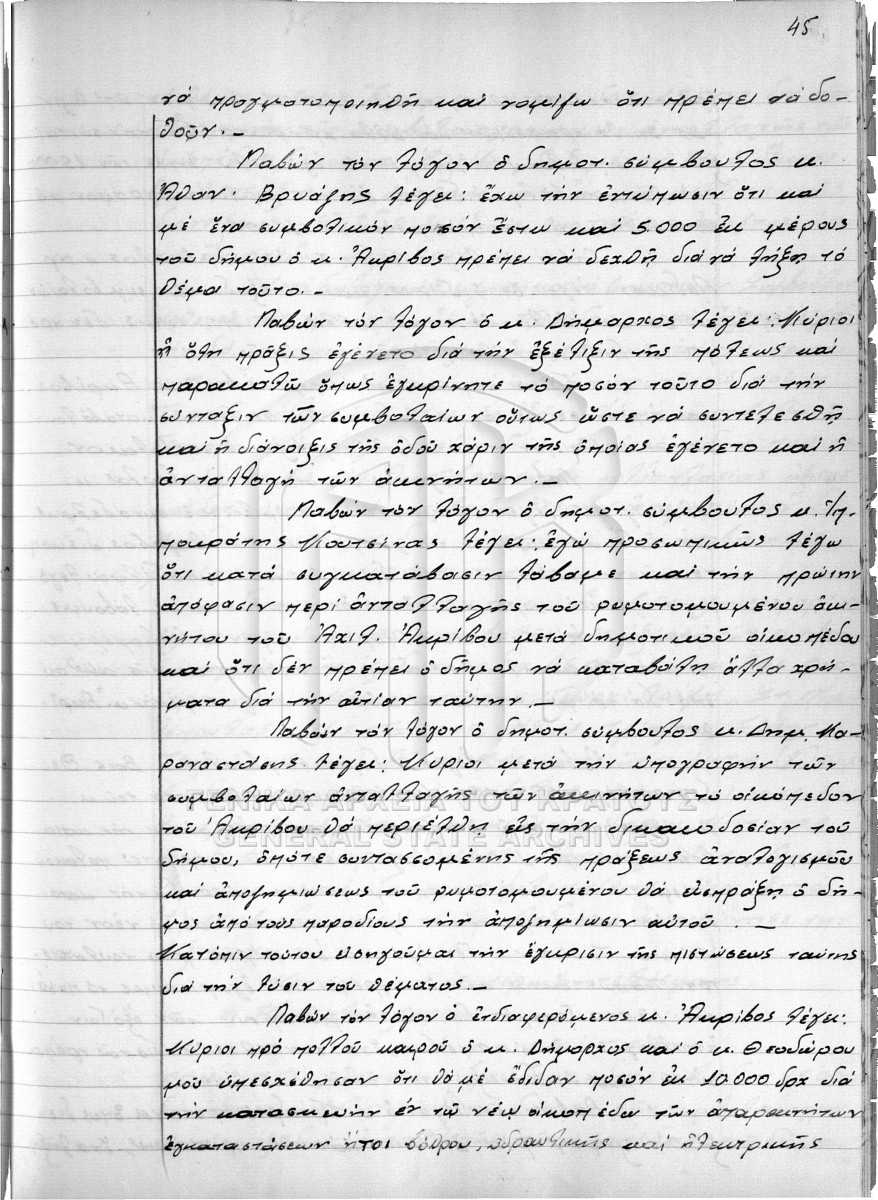 45
νά πραγματοποιηθῆ καί νομίζω ὅτι πρέπει νά δο-
θοῦν. -
Λαβών τόν λόγον ὁ δημοτ. σύμβουλος κ.
Ἀθαν. Βρυάζης λέγει: ἔχω τήν ἐντύπωσιν ὅτι καί
μέ ἕνα συμβολικόν ποσόν ἔστω καί 5.000 ἐκ μέρους
τοῦ δήμου ὁ κ. Ἀκρίβος πρέπει νά δεχθῆ διά νά λήξη τό
θέμα τοῦτο. -
Λαβών τόν λόγον ὁ κ. Δήμαρχος λέγει: Κύριοι
ἡ ὅλη πρᾶξις ἐγένετο διά τήν ἐξέλιξιν τῆς πόλεως καί
παρακαλῶ ὅπως ἐγκρίνητε τό ποσόν τοῦτο διά τήν
σύνταξιν τῶν συμβολαίων οὕτως ὥστε νά συντελεσθῆ
καί ἡ διάνοιξις τῆς ὁδοῦ χάριν τῆς ὁποίας ἐγένετο καί ἡ
ἀνταλλαγή τῶν ἀκινήτων. -
Λαβών τόν λόγον ὁ δημοτ. σύμβουλος κ. Ἱπ-
ποκράτης Κουτσίνας λέγει: ἐγώ προσωπικῶς λέγω
ὅτι κατά συγκατάβασιν λάβαμε καί τήν πρώτην
ἀπόφασιν περί ἀνταλλαγῆς τοῦ ρυμοτομουμένου ἀκι-
νήτου τοῦ Ἀχιλ. Ἀκρίβου μετά δημοτικοῦ οἰκοπέδου
καί ὅτι δέν πρέπει ὁ δῆμος νά καταβάλη ἄλλα χρή-
ματα διά τήν αἰτίαν ταύτην. -
Λαβών τόν λόγον ὁ δημοτ. σύμβουλος κ. Δημ. Κα-
ραναστάσης λέγει: Κύριοι μετά τήν ὑπογραφήν τῶν
συμβολαίων ἀνταλλαγῆς τῶν ἀκινήτων τό οἰκόπεδον
τοῦ Ἀκρίβου θά περιέλθη εἰς τήν δικαιοδοσίαν τοῦ
ΓΕΝΙΚΑ ΑΡΧΕΙΑ ΤΟΥ ΚΡΑΤΟΥΣ
GENERAL STATE ARCHIVES
δήμου, ὁπότε συντασσομένης τῆς πράξεως ἀναλογισμοῦ
καί ἀποζημιώσεως τοῦ ρυμοτομουμένου θά εἰσπράξη ὁ δῆ-
μος ἀπό τούς παροδίους τήν ἀποζημίωσιν αὐτοῦ. -
Κατόπιν τούτου εἰσηγοῦμαι τήν ἔγκρισιν τῆς πιστώσεως ταύτης
διά τήν λύσιν τοῦ θέματος. -
Λαβών τόν λόγον ὁ ἐνδιαφερόμενος κ. Ἀκρίβος λέγει:
Κύριοι πρό πολλοῦ καιροῦ ὁ κ. Δήμαρχος καί ὁ κ. Θεοδώρου
μοῦ ὑπεσχέθησαν ὅτι θά μέ ἔδιδαν ποσόν ἐκ 10.000 δρχ διά
τήν κατασκευήν ἐν τῶ νέω οἰκοπέδω τῶν ἀπαραιτήτων
ἐγκαταστάσεων ἤτοι βόθρου, ὑδραυλικῆς καί ἠλεκτρικῆς